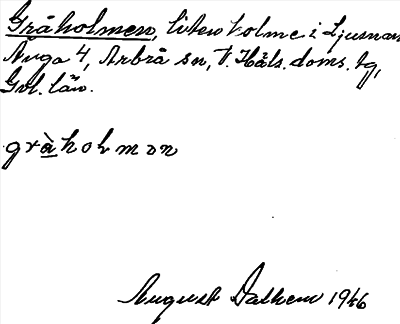 Gråholmen, liten holme i Ljusnan
Nuga 4, Arbrå sn, V. Häls. doms. tg,
Gvl. län.
gràholmon
August 1946